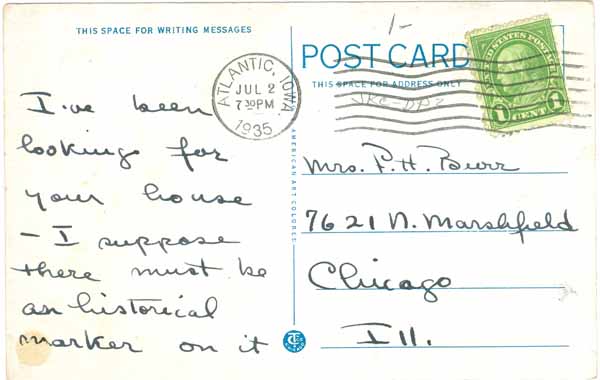 THIS SPACE FOR WRITING MESSAGES
1-
POST CARD
THIS SPACE FOR ADDRESS ONLY
ATLANTIC, IOWA
JUL 2
7 30 PM
1935
UNITED STATES POSTAGE
1 CENT 1
AMERICAN ART COLORED
I've been
looking for
your house
- I suppose
there must be
an historical
marker on it
Mrs. F. H. Burr
7621 N. Marshfield
Chicago
Ill.